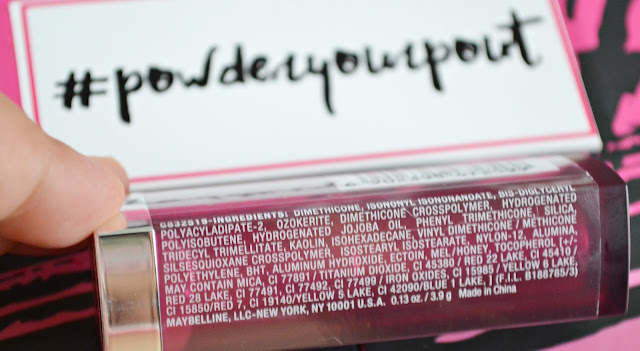 #powderyourpout
0832519-INGREDIENTS: DIMETHICONE, ISONONYL ISONONANOATE, BIS-DIGLYCERYL
POLYACYLADIPATE-2, OZOKERITE DIMETHICONE CROSSPOLYMER, HYDROGENATED
POLYISOBUTENE, HYDROGENATED JOJOBA OIL, PHENYL TRIMETHICONE, SILICA,
TRIDECYL TRIMELLITATE, KAOLIN, ISOHEXADECANE, VINYL DIMETHICONE / METHICONE
SILSESQUIOXANE CROSSPOLYMER, ISOSTEARYL ISOSTEARATE, NYLON-12, ALUMINA,
POLYETHYLENE, BHT, ALUMINUM HYDROXIDE, ECTOIN, MEL / HONEY, TOCOPHEROL (+/-
MAY CONTAIN MICA, CI 77891 / TITANIUM DIOXIDE, CI 45380 / RED 22 LAKE, CI 45410 /
RED 28 LAKE, CI 77491, CI 77492, CI 77499 / IRON OXIDES, CI 15985 / YELLOW 6 LAKE,
CI 15850/RED 7, CI 19140/YELLOW 5 LAKE, CI 42090/BLUE 1 LAKE, ) (F.I.L. B188785/3)
MAYBELLINE, LLC-NEW YORK, NY 10001 U.S.A. 0.13 oz. / 3.9 g Made in China